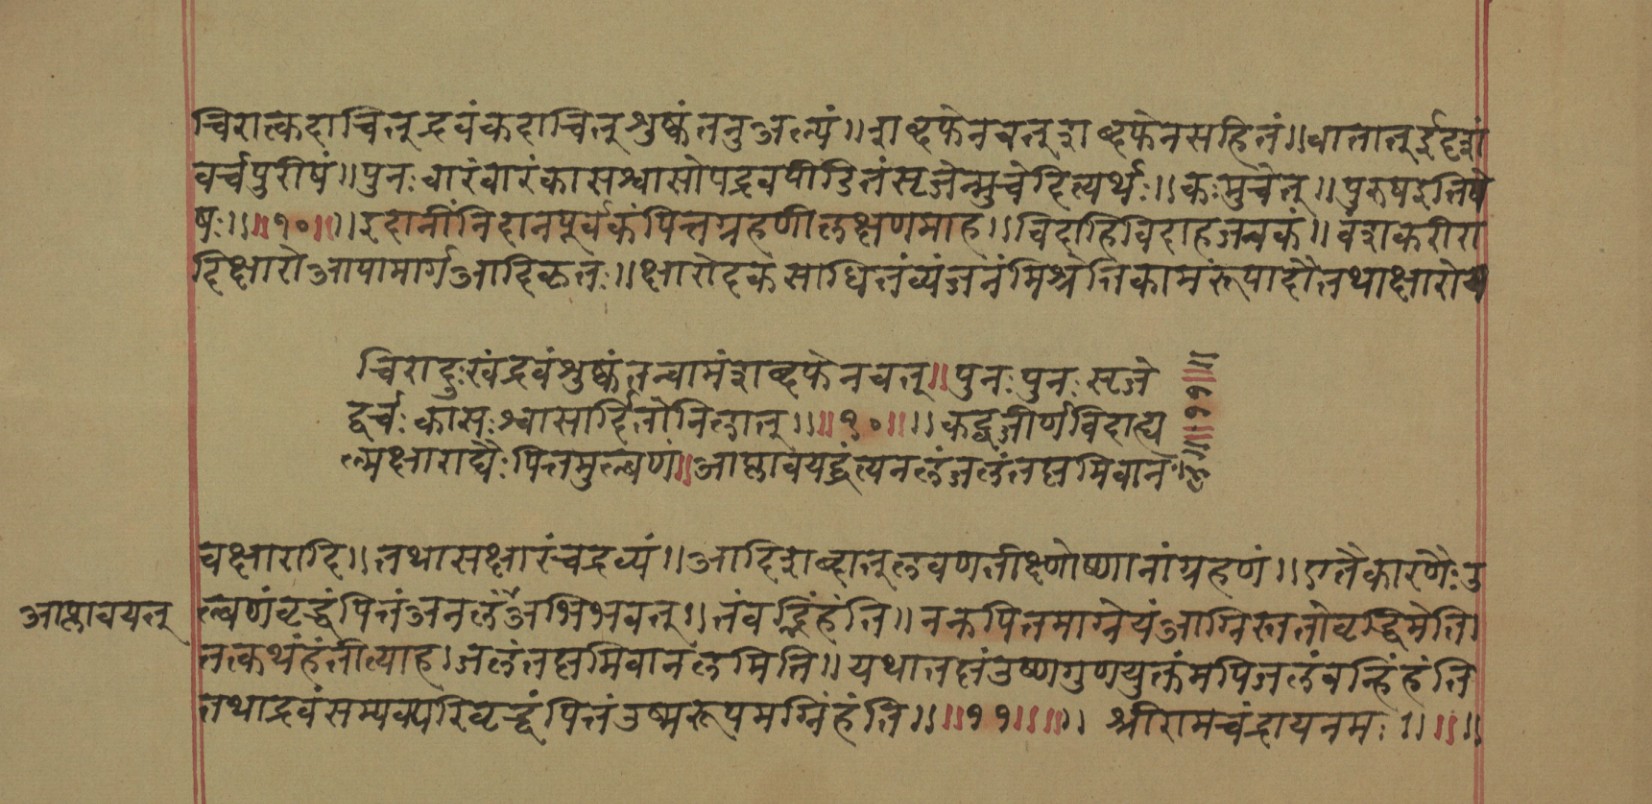 चिरात्कदाचित्द्रवंकदाचित्शुष्कंतनुअल्पं॥शब्दफेनवत्शब्दफेनसहितं॥वातात्ईदृशं
वर्चपुरीषं॥पुनःवारंवारंकासश्वासोपद्रवपीडितंसृजेन्मुचेदित्यर्थः॥कःमुचेत्॥पुरुषइतिषे
षः॥॥१०॥॥इदानींनिदानपूर्वकंपित्तग्रहणीलक्षणमाह॥विदाहिविदाहजनकं॥वंशकरीरा
दिक्षारोआपामार्गआदिकृतः॥क्षारोदकसाधितंव्यंजनंमिश्रतिकामंरूपादौतथाक्षारोय
चिरादुःखंद्रवंशुष्कंतन्वामंशब्दफेनवत्॥पुनःपुनःसृजे
द्वर्चःकासःश्वासार्दितोनिलात्॥॥१०॥॥कट्वजीर्णविदाह्य
ल्मक्षाराद्यैःपित्तमुल्बणं॥आप्लावयद्धंत्यनलंजलंतप्तमिवान
लं॥॥११॥॥
वक्षारादि॥तथासक्षारंचद्रव्यं॥आदिशब्दात्लवणतीक्ष्णोष्णानांग्रहणं॥एतैकारणैःउ
ल्बणंवृद्धंपित्तंअनलंअभिभवत्॥तंवह्निंहंति॥नक्तपित्तमाग्नेयंआग्निस्ततोवृद्धिमेति।
आप्लावयत्
तत्कथंहंतीत्याह।जलंतप्तमिवानलमिति॥यथातप्तंउष्णगुणयुक्तंमपिजलंवन्हिंहंति
तथाद्रवंसम्यक्परिवृद्धंपित्तंउष्मरूपमग्निंहंति॥॥११॥॥॥ श्रीरामचंद्रायनमः॥॥॥